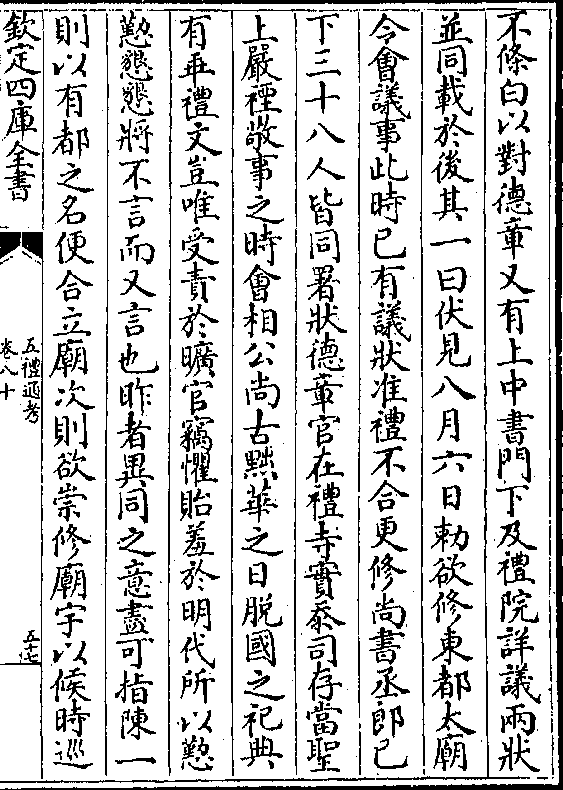 不條白以對德章又有上中書門下及禮院詳議兩狀
並同載於後其一曰伏見八月六日勅欲修東都太廟
令會議事此時已有議狀准禮不合更修尚書丞郎已
下三十八人皆同署狀德章官在禮寺實忝司存當聖
上嚴禋敬事之時會相公尚古黜華之日脱國之祀典
有乖禮文豈唯受責於曠官竊懼貽羞於明代所以懃
懃懇懇將不言而又言也昨者異同之意盡可指陳一
則以有都之名便合立廟次則欲崇修廟宇以候時巡
欽定四庫全書
五禮通考
卷八十
五十七